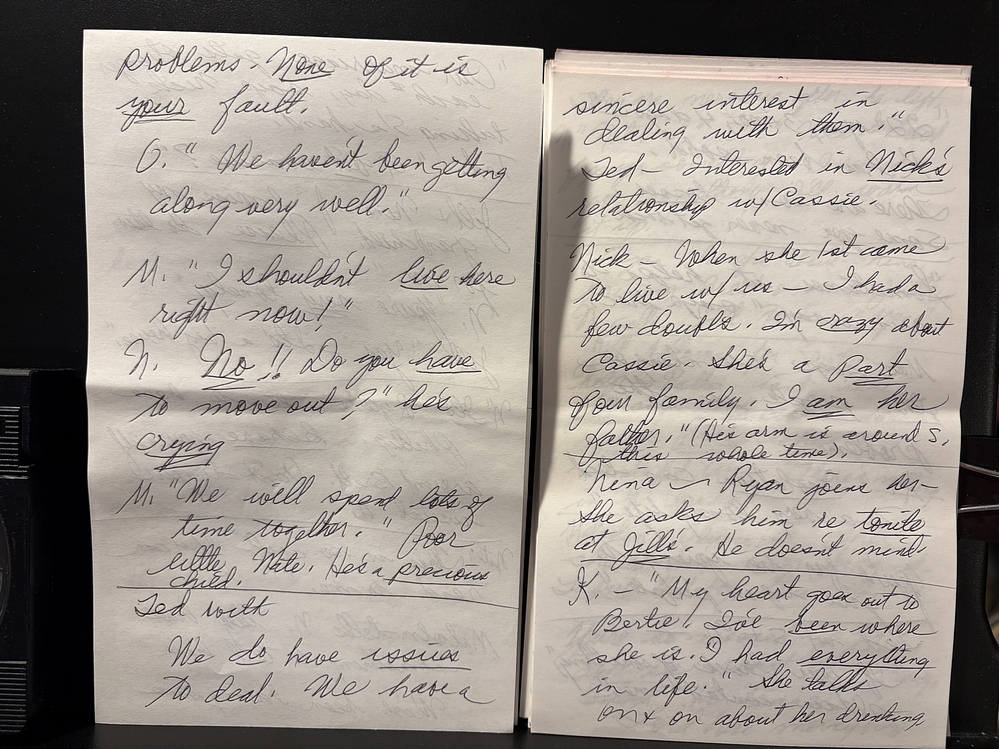 problems. None of it is
your fault.
O. "We haven't been getting
along very well."
M. "I shouldn't live here
right now!"
N. No!! Do you have
to move out?" he's
crying
M. "We will spend lots of
time together." Poor
little Nate. He's a precious
child.
Ted with
We do have issues
to deal. We have a
sincere interest in
dealing with them."
Ted - Interested in Nick's
relationship w/ Cassie.
Nick - When she 1st came
to live w/ us - I had a
few doubts. I'm crazy about
Cassie. She's a Part
of our family. I am her
father." (His arm is around S.
this whole time).
Nina - Ryan joins her -
She asks him re tonite
at Jill's. He doesn't mind.
K. - "My heart goes out to
Bertie! I've been where
she is. I had everything
in life." She talks
on + on about her drinking